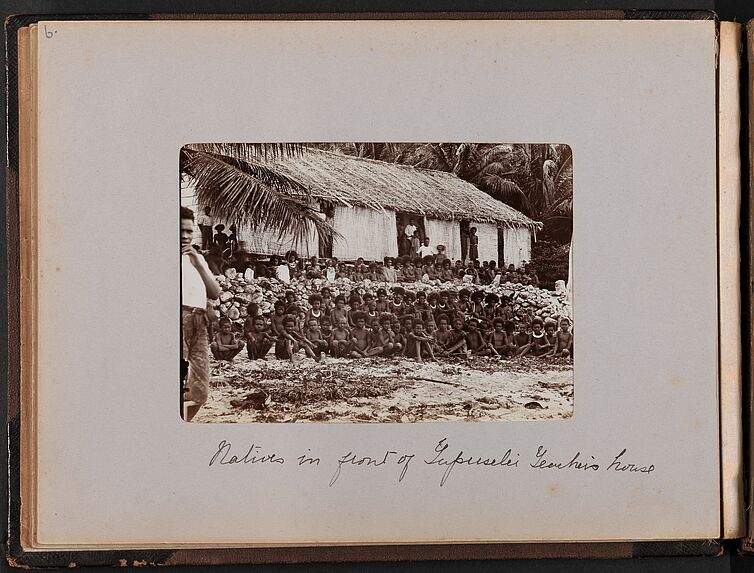 6.
Natives in front of Tupuselei Teachers house